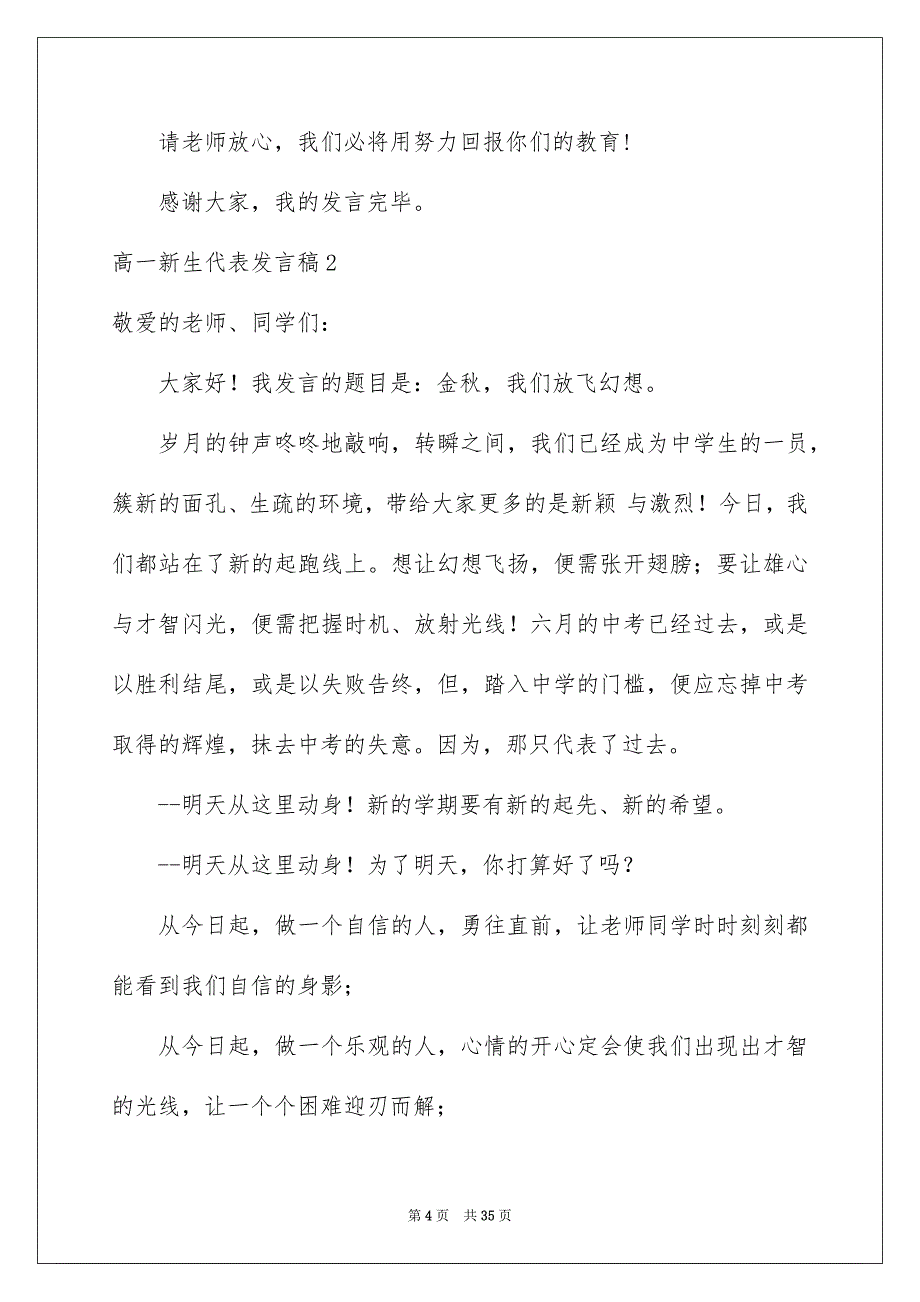 请老师放心，我们必将用努力回报你们的教育!
感谢大家，我的发言完毕。
高一新生代表发言稿 2
敬爱的老师、同学们：
大家好！我发言的题目是：金秋，我们放飞幻想。
岁月的钟声咚咚地敲响，转瞬之间，我们已经成为中学生的一员，
簇新的面孔、生疏的环境，带给大家更多的是新颖 与激烈！今日，我
们都站在了新的起跑线上。想让幻想飞扬，便需张开翅膀；要让雄心
与才智闪光，便需把握时机、放射光线！六月的中考已经过去，或是
以胜利结尾，或是以失败告终，但，踏入中学的门槛，便应忘掉中考
取得的辉煌，抹去中考的失意。因为，那只代表了过去。
--明天从这里动身！新的学期要有新的起先、新的希望。
--明天从这里动身！为了明天，你打算好了吗？
从今日起，做一个自信的人，勇往直前，让老师同学时时刻刻都
能看到我们自信的身影；
从今日起，做一个乐观的人，心情的开心定会使我们出现出才智
的光线，让一个个困难迎刃而解；
第 4 页 共 35 页